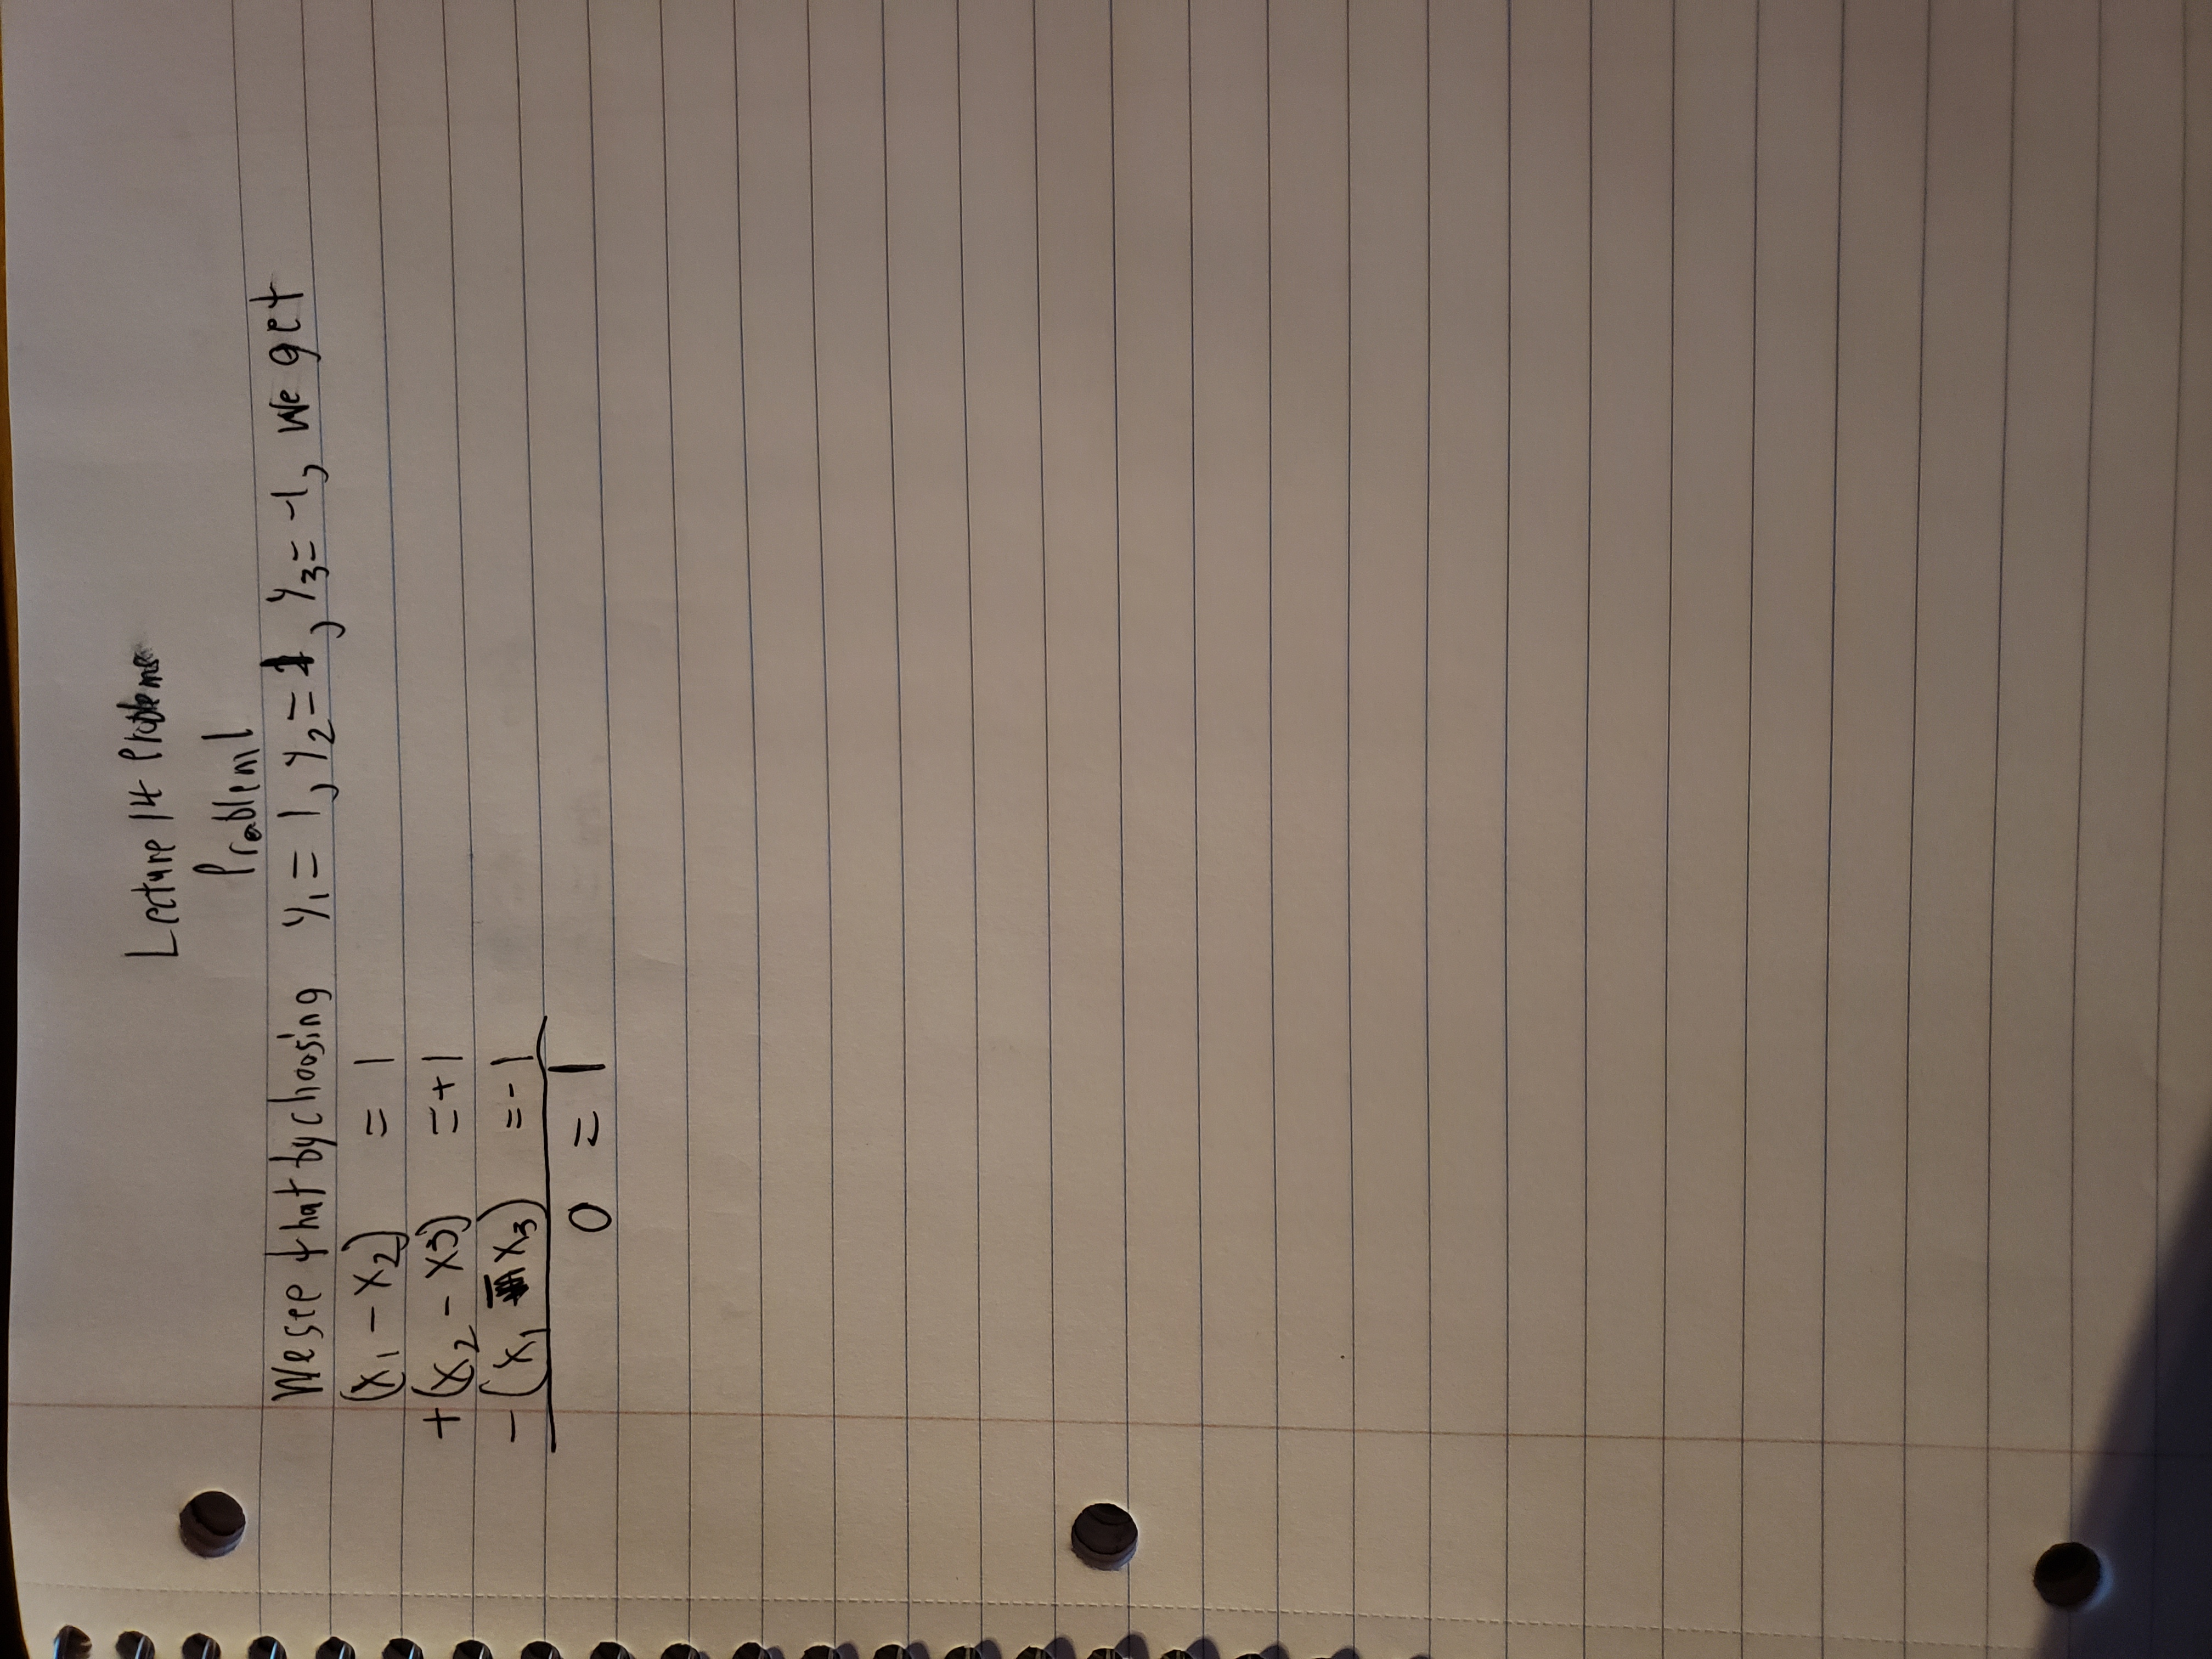 Lecture 14 Problems
Problem 1
We see that by choosing y₁ = 1, y₂ = 1, y₃ = -1, we get
(x₁ - x₂) = 1
+(x₂ - x3) = +1
-(x₁ - x₃) = -1
0 = 1